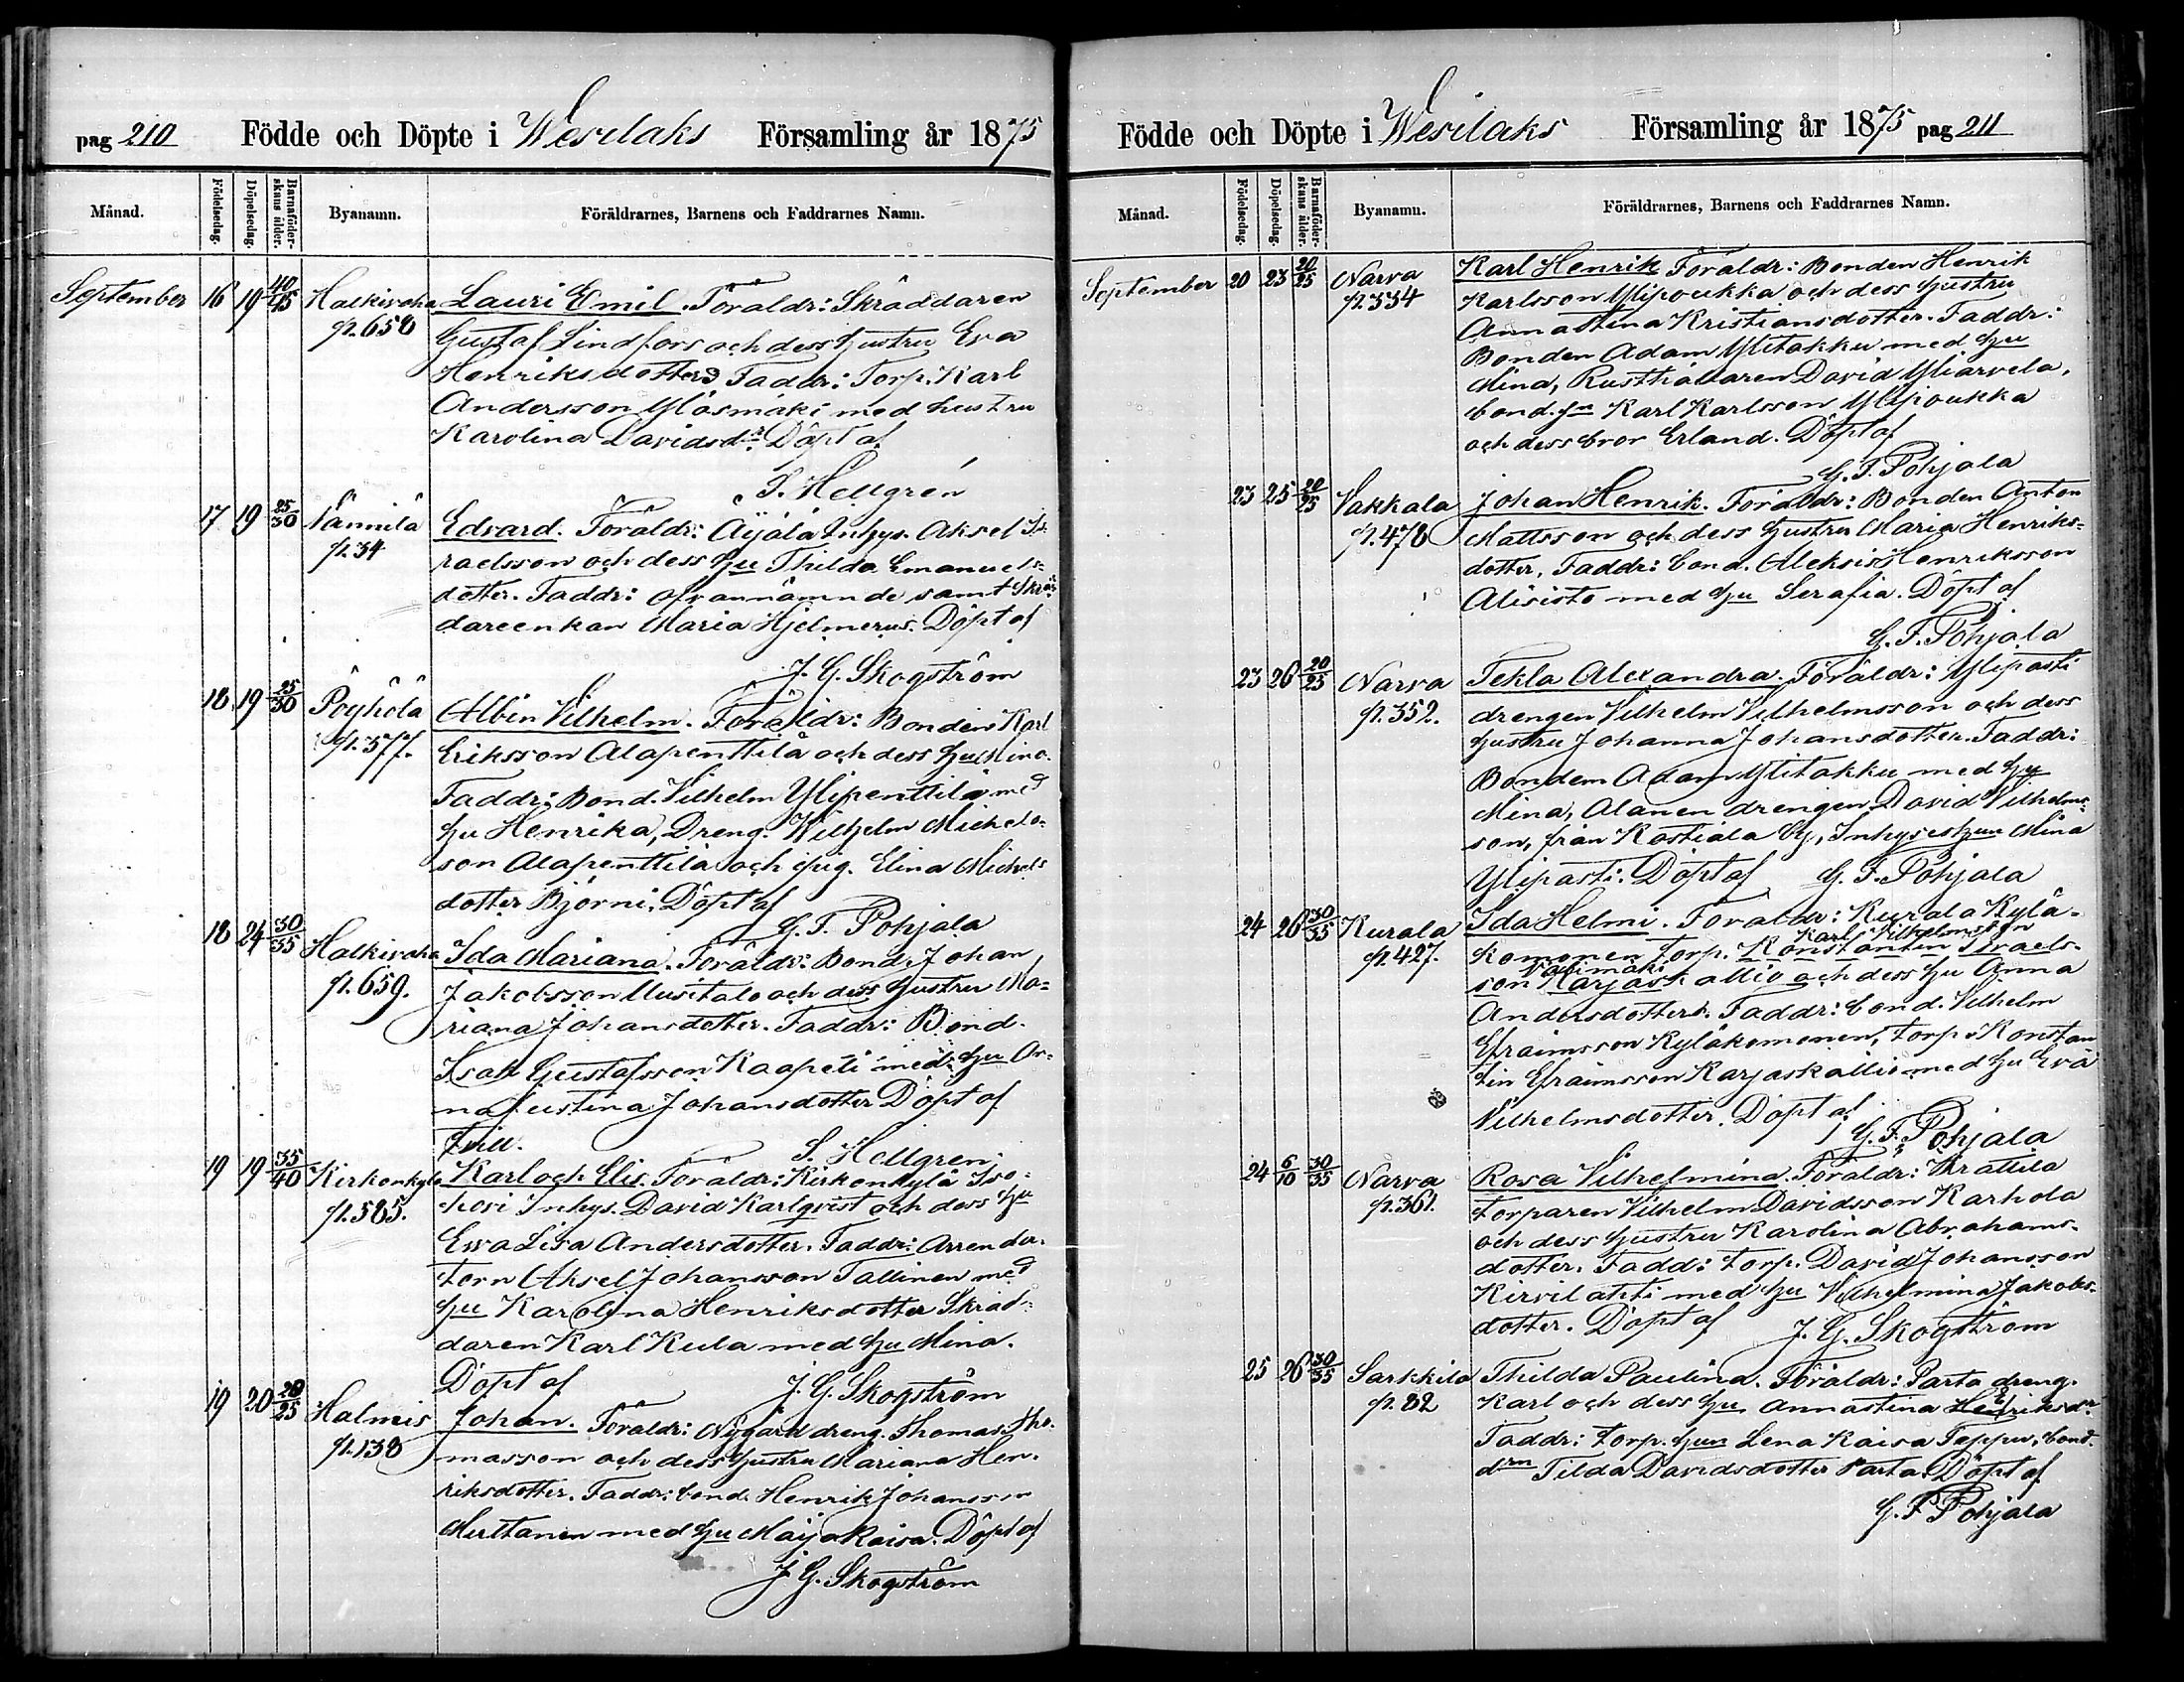 pag 210 Födde och Döpte i Wesilaks Församling år 1875
Månad. Födelsedag. Döpelsedag. Barnaföderskans ålder. Byanamn. Föräldrarnes, Barnens och Faddrarnes Namn.
September 16 19 40/45 Halkivaha Lauri Emil. Föräldr: Skräddaren
p. 658 Gustaf Lindfors och dess hustru Eva
Henriksdotter Faddr: Torp. Karl
Andersson Ylösmäki med hustru
Karolina Davidsdr. Döpt af
S. Hellgrén
17 19 25/30 Nännilä Edvard. Föräldr: Äijälä Inhys. Aksel Is-
p. 34 raelsson och dess hu Thilda Emanuels-
dotter. Faddr: ofvannämnde samt Skräd-
dareenkan Maria Hjelmerus. Döpt af
J. G. Skogström
18 19 25/30 Pöyhölä Albin Vilhelm. Föräldr: Bonden Karl
p. 377. Eriksson Alapenttilä och dess hu Mina.
Faddr: Bond. Vilhelm Ylipenttilä med
hu Henrika, Dreng. Wilhelm Michels-
son Alapenttilä och pig. Elina Michels
dotter Björni. Döpt af
G. F. Pohjala
18 24 30/35 Halkivaha Ida Mariana. Föräldr: Bond. Johan
p. 659. Jakobsson Uusitalo och dess hustru Ma-
riana Johansdotter. Faddr: Bond.
Isak Gustafsson Kaapeli med hu An-
na Justina Johansdotter Döpt af
S. Hellgren
19 19 35/40 Kirkonkylä Karl och Elis. Föräldr: Kirkonkylä Iso-
p. 585. Inhys. David Karlqvist och dess hu
Eva Lisa Andersdotter. Faddr: Arrenda-
torn Aksel Johansson Tallinen med
hu Karolina Henriksdotter Skräd-
daren Karl Kula med hu Mina.
Döpt af J. G. Skogström
19 20 20/25 Halmis Johan. Föräldr: Nygård dreng. Thomas Tho-
p. 138 masson och dess hustru Mariana Hen-
riksdotter. Faddr: bond. Henrik Johansson
Multanen med hu Maija Kaisa. Döpt af
J. G. Skogström
Födde och Döpte i Wesilaks Församling år 1875 pag 211
Månad. Födelsedag. Döpelsedag. Barnaföderskans ålder. Byanamn. Föräldrarnes, Barnens och Faddrarnes Namn.
September 20 23 20/25 Narva Karl Henrik Föräldr: Bonden Henrik
p. 334 Karlsson Ylipoukka och dess hustru
Annastina Kristiansdotter. Faddr:
Bonden Adam Ylitakku med hu
Mina, Rusthållaren David Yliarvela,
bond. sn Karl Karlsson Ylipoukka
och dess bror Erland. Döpt af
G. F. Pohjala
23 25 20/25 Vakkala Johan Henrik. Föräldr: Bonden Anton
p. 478 Mattsson och dess hustru Maria Henriks-
dotter, Faddr: bond. Aleksis Henriksson
Alisisto med hu Serafia. Döpt af
G. F. Pohjala
23 26 20/25 Narva Tekla Alexandra. Föräldr: Ylipasti
p. 352. drengen Vilhelm Vilhelmsson och dess
hustru Johanna Johansdotter. Faddr:
Bonden Adam Ylitakku med hu
Mina, Alanen drengen David Vilhelms-
son, från Kostiala by, Inhyseshun Mina
Ylipasti. Döpt af G. F. Pohjala
24 26 30/35 Kurala Ida Helmi. Föräldr: Kurala Kylä-
Karl Vilhelmsson
p. 427. komonen Torp. Konstantin Israels-
son Karjaskallio och dess hu Anna
Andersdotter. Faddr: bond. Vilhelm
Efraimsson Kyläkomonen, Torp. Konstan
tin Efraimsson Karjaskallio med hu Eva
Vilhelmsdotter. Döpt af
G. F. Pohjala
24 6/10 30/35 Narva Rosa Vilhelmina. Föräldr: Krattila
p. 361. torparen Vilhelm Davidsson Karhola
och dess hustru Karolina Abrahams-
dotter. Fadd: torp. David Johansson
Kirvilahti med hu Vilhelmina Jakobs-
dotter. Döpt af J. G. Skogström
25 26 30/35 Sarkkila Thilda Paulina. Föräldr: Parta dreng.
p. 82 Karl och dess hu Annastina Henriksdr.
Faddr: torp. hun Lena Kaisa Teppu, bond.
drn Tilda Davidsdotter Parta. Döpt af
G. F. Pohjala